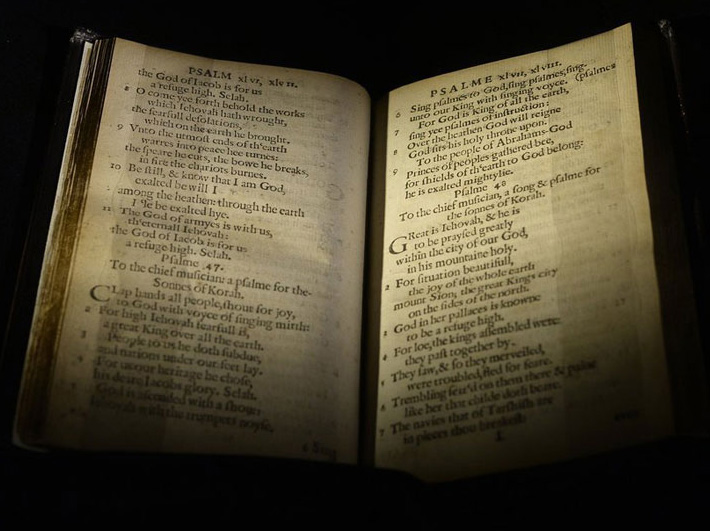 PSALM xlvi, xlvii.
the God of Iacob is for us
a refuge high. Selah.
8 O come yee forth behold the works
which Iehovah hath wrought,
the fearfull desolations,
which on the earth he brought.
9 Vnto the utmost ends of th'earth
warres into peace hee turnes:
the speare he cuts, the bowe he breaks,
in fire the chariots burnes.
10 Be still, & know that I am God,
exalted be will I
among the heathen: through the earth
I'le be exalted hye.
11 The God of armyes is with us,
th'eternall Iehovah:
the God of Iacob is for us
a refuge high. Selah.
Psalme 47.
To the chief musician: a psalme for the
Sonnes of Korah.
CLap hands all people, shout for joy,
to God with voyce of singing mirth:
2 For high Iehovah fearfull is,
a great King over all the earth.
3 People to us he doth subdue,
and nations under our feet lay.
4 For us our heritage he chose,
his deare Iacobs glory. Selah.
5 God is ascended with a shout:
Iehovah with the trumpets noyse.
6 Sing
PSALME xlvii, xlviii.
6 Sing psalmes to God, sing psalmes, sing
unto our King with singing voyce. (psalmes
7 For God is King of all the earth,
sing yee psalmes of instruction:
8 Over the heathen God will reigne
God sits his holy throne upon.
9 To the people of Abrahams God
Princes of peoples gathered bee,
for shields of th'earth to God belong:
he is exalted mightylie.
Psalme 48
To the chief musician, a song & psalme for
the sonnes of Korah.
GReat is Iehovah, & he is
to be praysed greatly
within the city of our God,
in his mountaine holy.
2 For situation beautifull,
the joy of the whole earth
mount Sion; the great Kings city
on the sides of the north.
3 God in her pallaces is knowne
to be a refuge high.
4 For loe, the kings assembled were:
they past together by.
5 They saw, & so they merveiled,
were troubled, fled for feare.
6 Trembling seiz'd on them there & paine
like her that childe doth beare.
7 The navies that of Tarshish are
in pieces thou breakest: